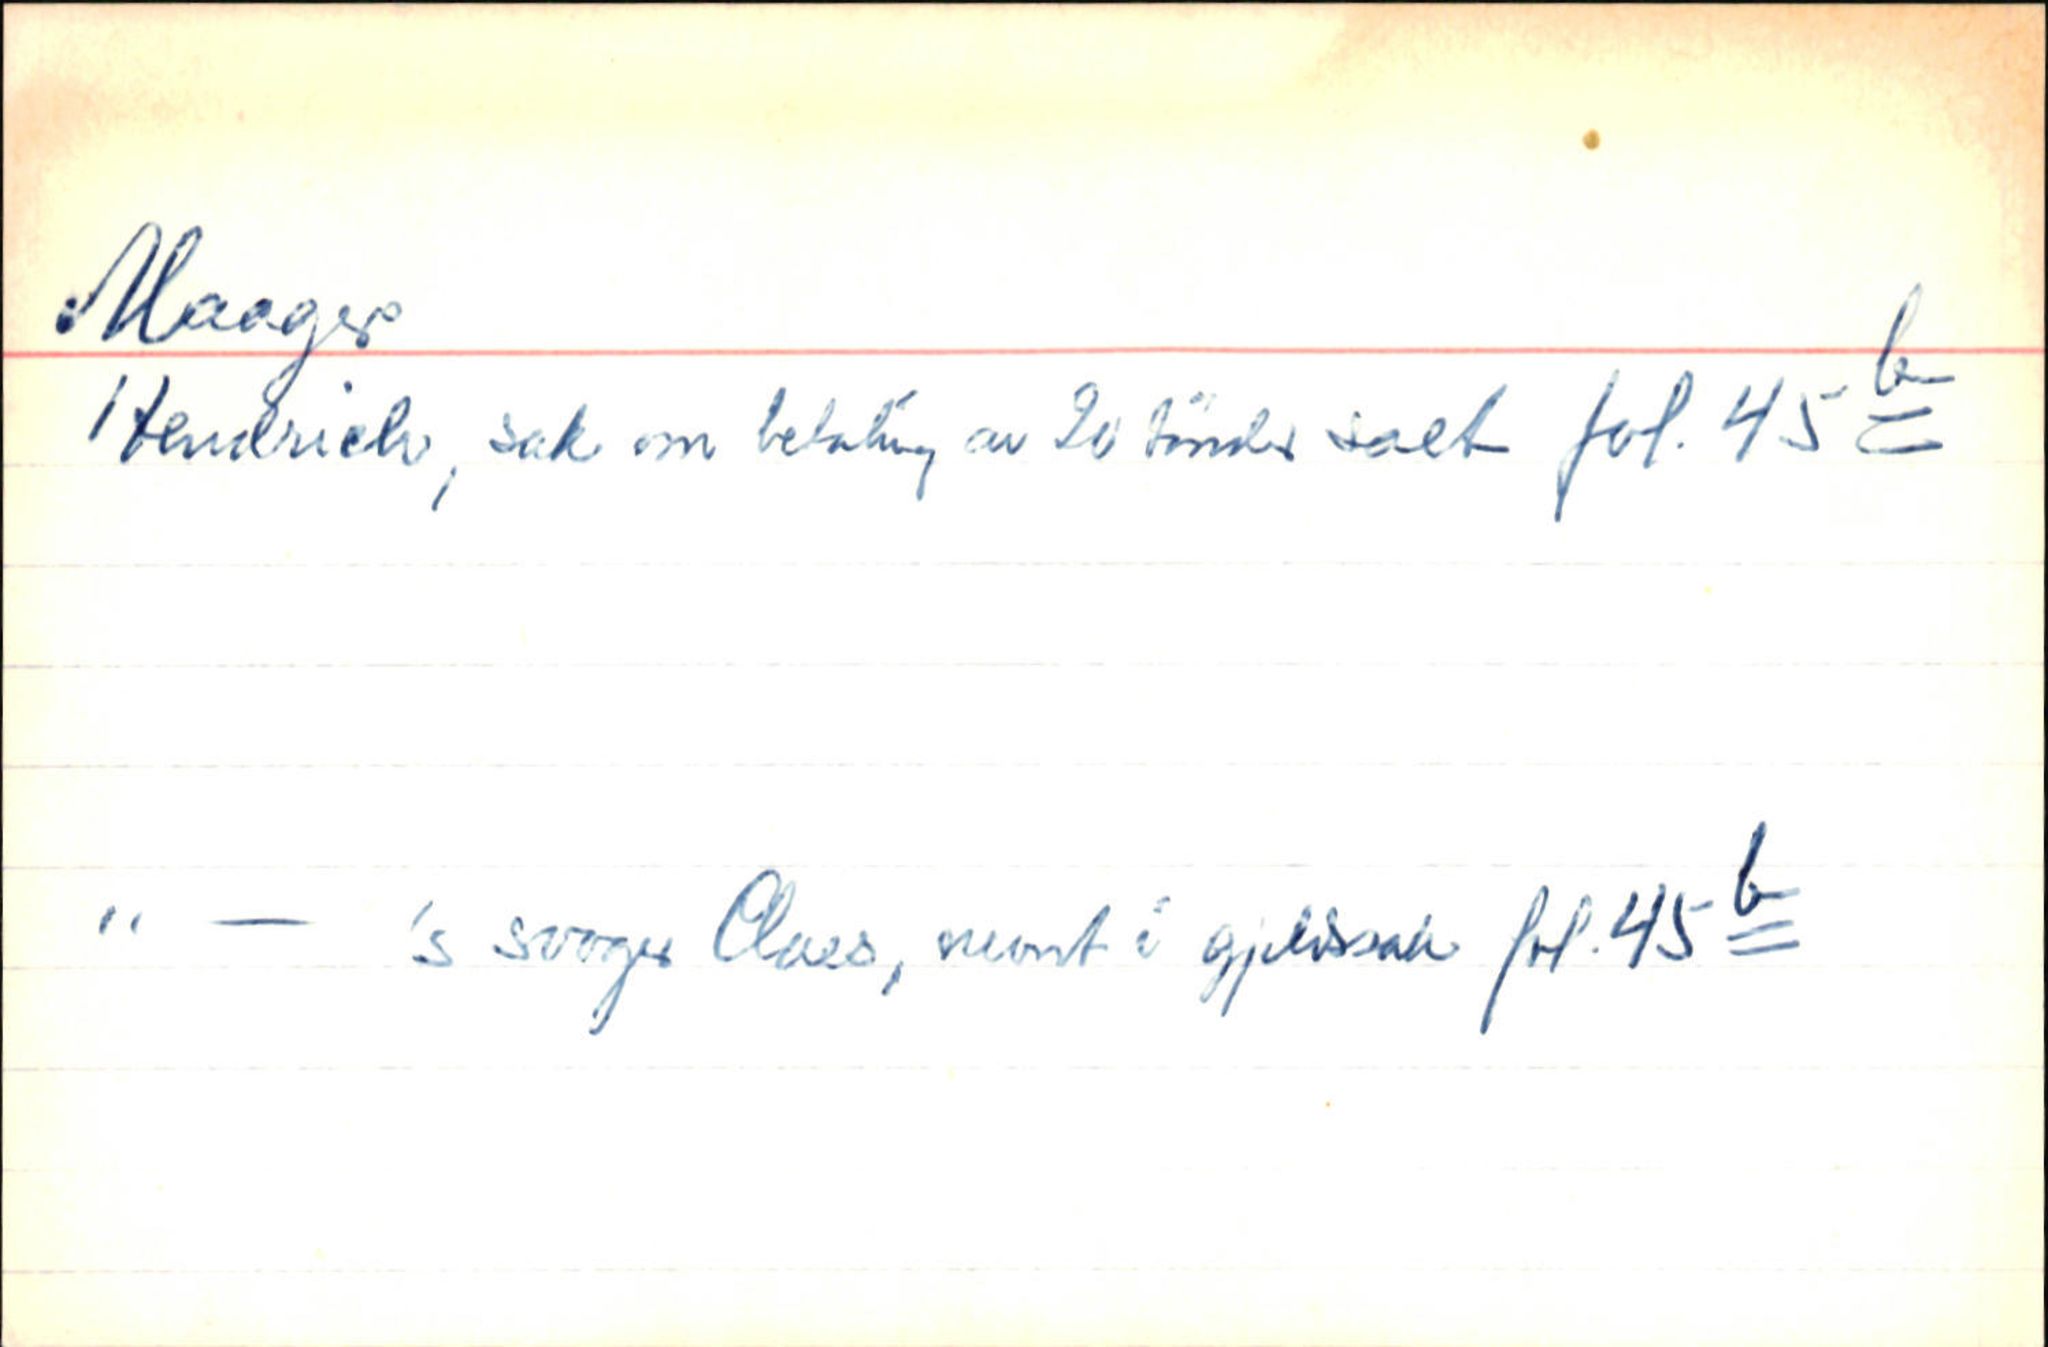 Maager
Hendrich, sak om betaling av 20 tönder salt fol. 45 b
" — 's svoger Claes, nevnt i gjeldssak fol. 45 b